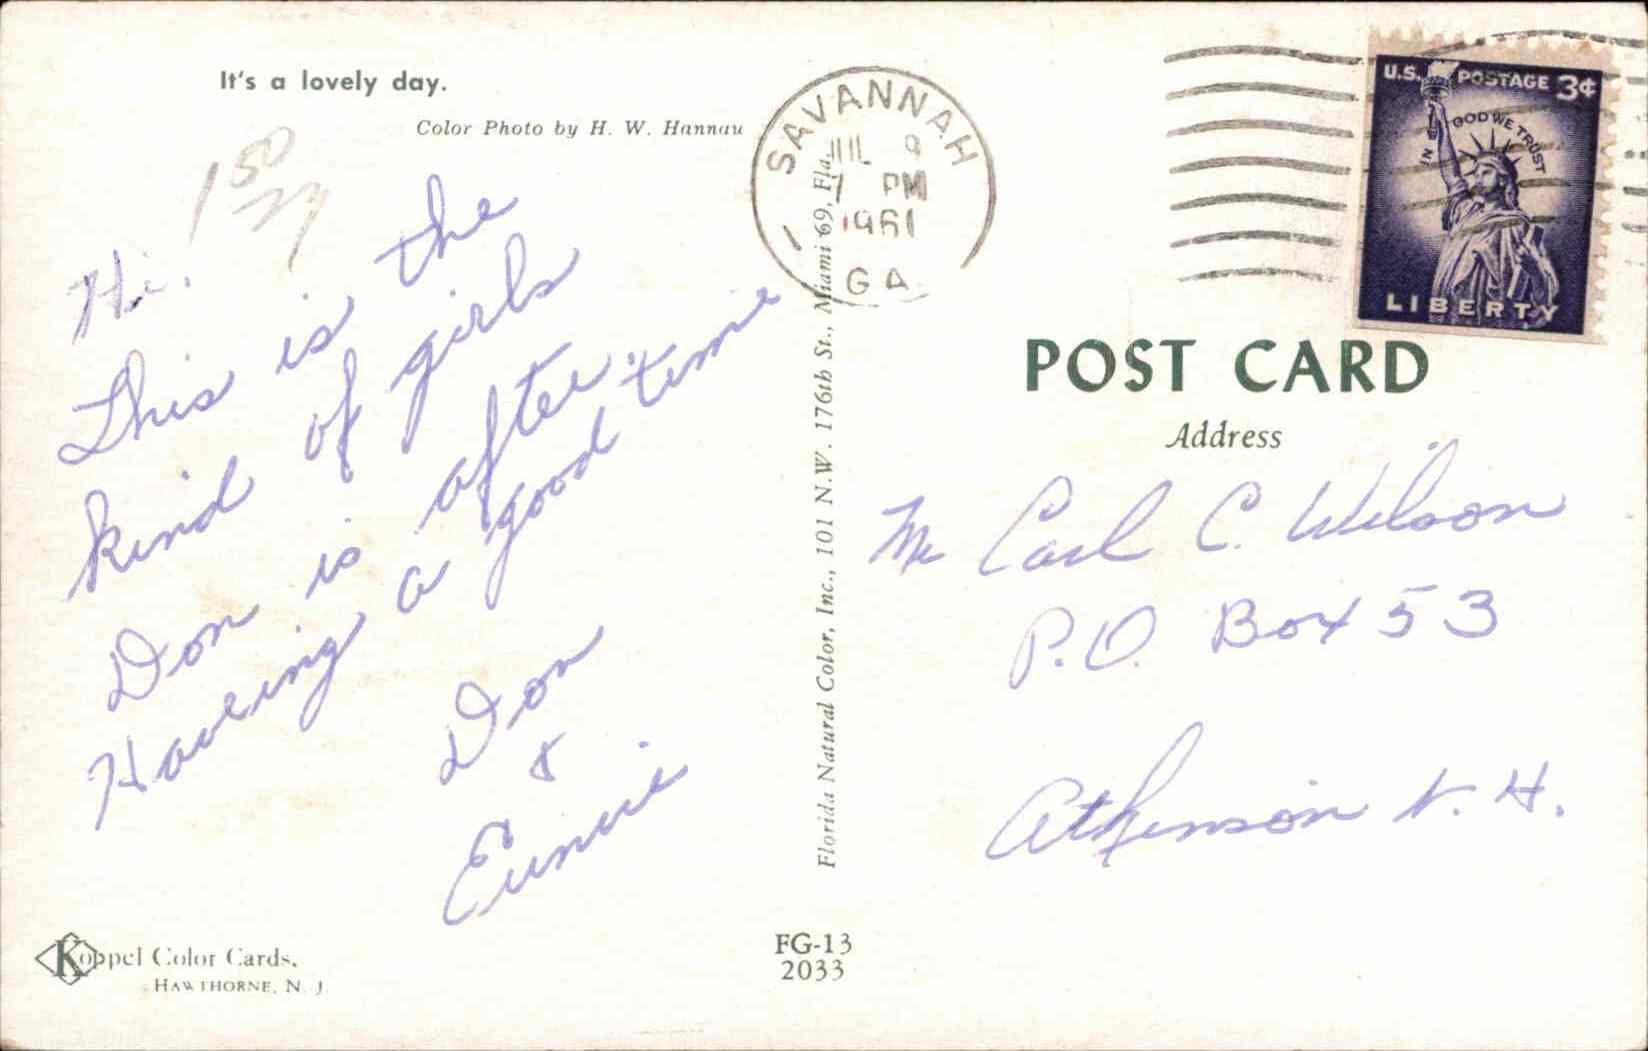 It's a lovely day.
Color Photo by H. W. Hannau
1 50
Hi.
This is the
kind of girls
Don is after.
Haveing a good time
Don
&
Eunice
Koppel Color Cards,
HAWTHORNE, N. J.
Florida Natural Color, Inc., 101 N.W. 176th St., Miami 69, Fla.
FG-13
2033
SAVANNAH
JUL 9
PM
1961
GA
U.S. POSTAGE 3¢
IN GOD WE TRUST
LIBERTY
POST CARD
Address
Mr Carl C. Wilson
P.O. Box 53
Atkinson N. H.